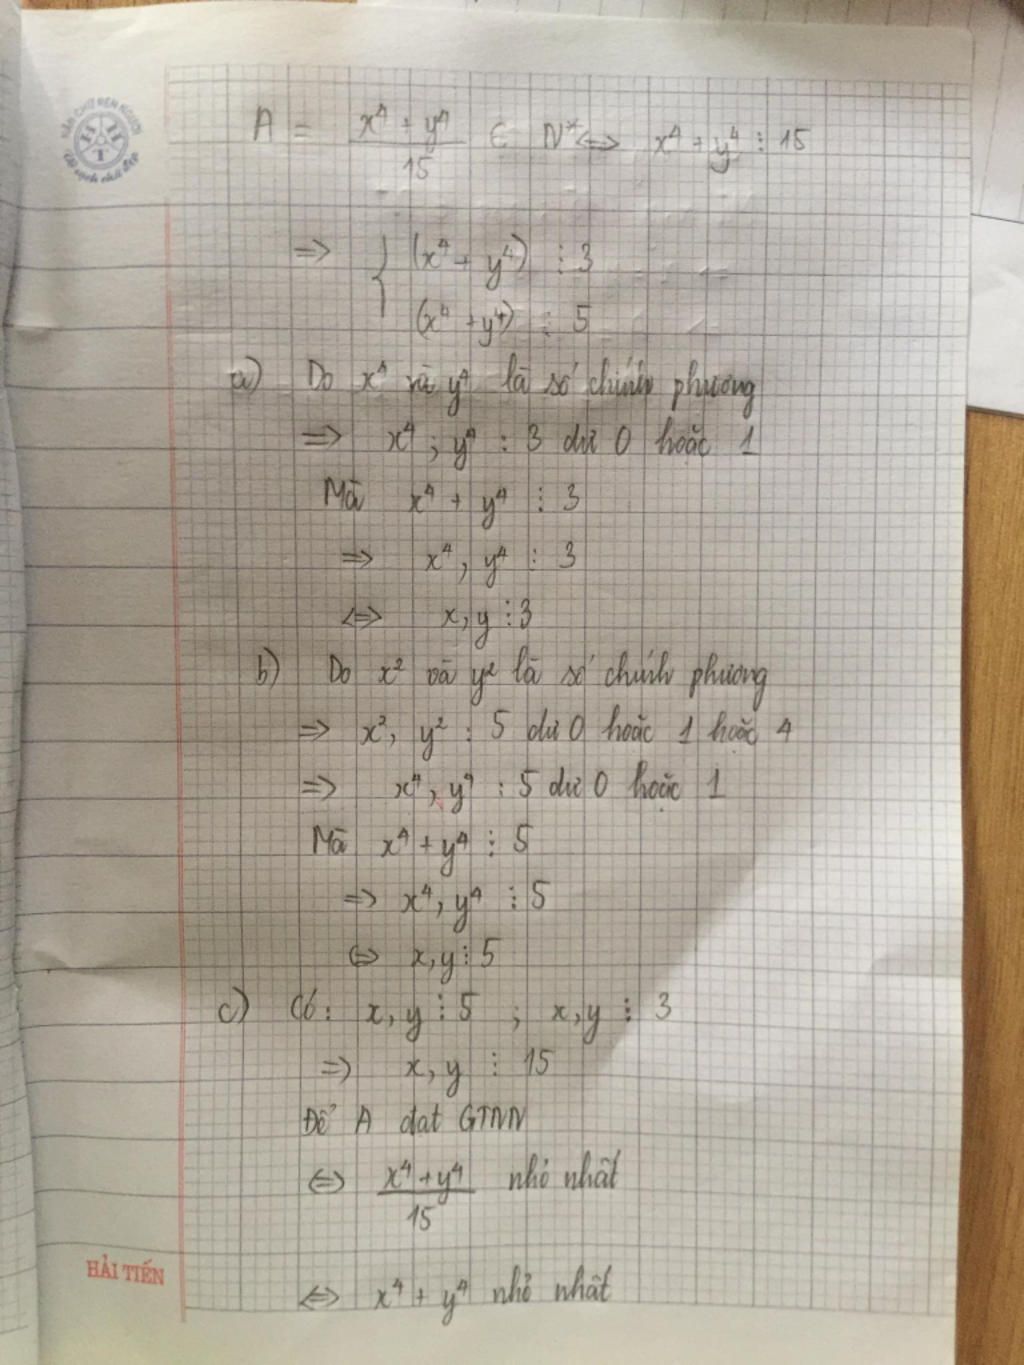 NÂN CHỮ RÈN NGƯỜI
A = x⁴ + y⁴ / 15 ∈ N* ⟺ x⁴ + y⁴ ⋮ 15
⟹ { (x⁴ + y⁴) ⋮ 3
(x⁴ + y⁴) ⋮ 5
a) Do x⁴ và y⁴ là số chính phương
⟹ x⁴ ; y⁴ : 3 dư 0 hoặc 1
Mà x⁴ + y⁴ ⋮ 3
⟹ x⁴, y⁴ ⋮ 3
⟺ x, y ⋮ 3
b) Do x² và y² là số chính phương
⟹ x², y² : 5 dư 0 hoặc 1 hoặc 4
⟹ x⁴, y⁴ : 5 dư 0 hoặc 1
Mà x⁴ + y⁴ ⋮ 5
⟹ x⁴, y⁴ ⋮ 5
⟺ x, y ⋮ 5
c) Có : x, y ⋮ 5 ; x, y ⋮ 3
⟹ x, y ⋮ 15
Để A đạt GTNN
⟺ x⁴ + y⁴ / 15 nhỏ nhất
⟺ x⁴ + y⁴ nhỏ nhất
HẢI TIẾN